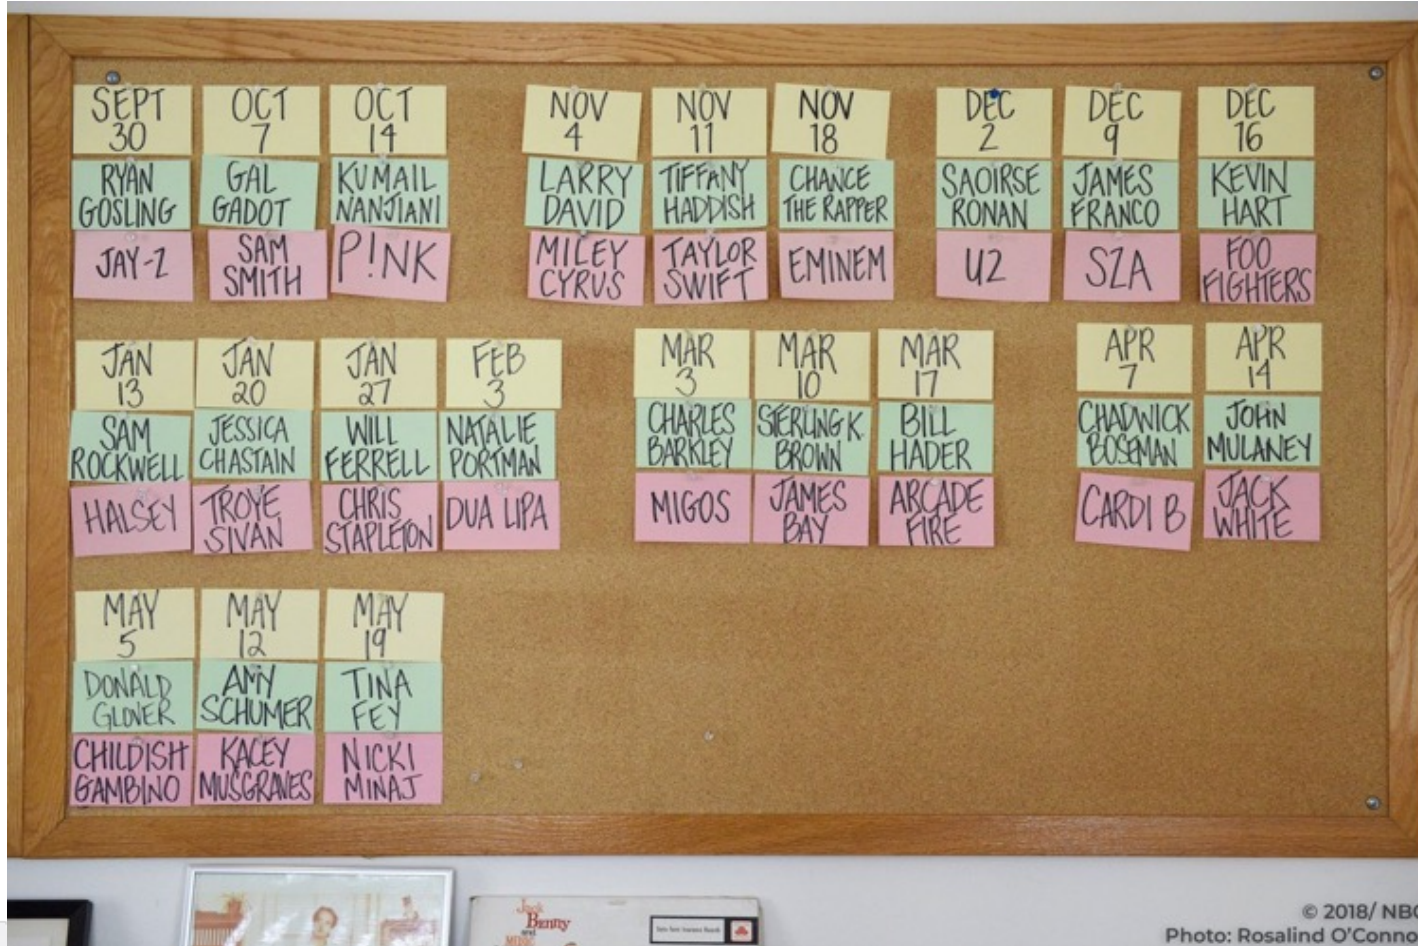 SEPT
30
RYAN
GOSLING
JAY-Z
OCT
7
GAL
GADOT
SAM
SMITH
OCT
14
KUMAIL
NANJIANI
P!NK
NOV
4
LARRY
DAVID
MILEY
CYRUS
NOV
11
TIFFANY
HADDISH
TAYLOR
SWIFT
NOV
18
CHANCE
THE RAPPER
EMINEM
DEC
2
SAOIRSE
RONAN
U2
DEC
9
JAMES
FRANCO
SZA
DEC
16
KEVIN
HART
FOO
FIGHTERS
JAN
13
SAM
ROCKWELL
HALSEY
JAN
20
JESSICA
CHASTAIN
TROYE
SIVAN
JAN
27
WILL
FERRELL
CHRIS
STAPLETON
FEB
3
NATALIE
PORTMAN
DUA LIPA
MAR
3
CHARLES
BARKLEY
MIGOS
MAR
10
STERLING K.
BROWN
JAMES
BAY
MAR
17
BILL
HADER
ARCADE
FIRE
APR
7
CHADWICK
BOSEMAN
CARDI B
APR
14
JOHN
MULANEY
JACK
WHITE
MAY
5
DONALD
GLOVER
CHILDISH
GAMBINO
MAY
12
AMY
SCHUMER
KACEY
MUSGRAVES
MAY
19
TINA
FEY
NICKI
MINAJ
Jack
BENNY
and
© 2018/ NBC
Photo: Rosalind O'Conno